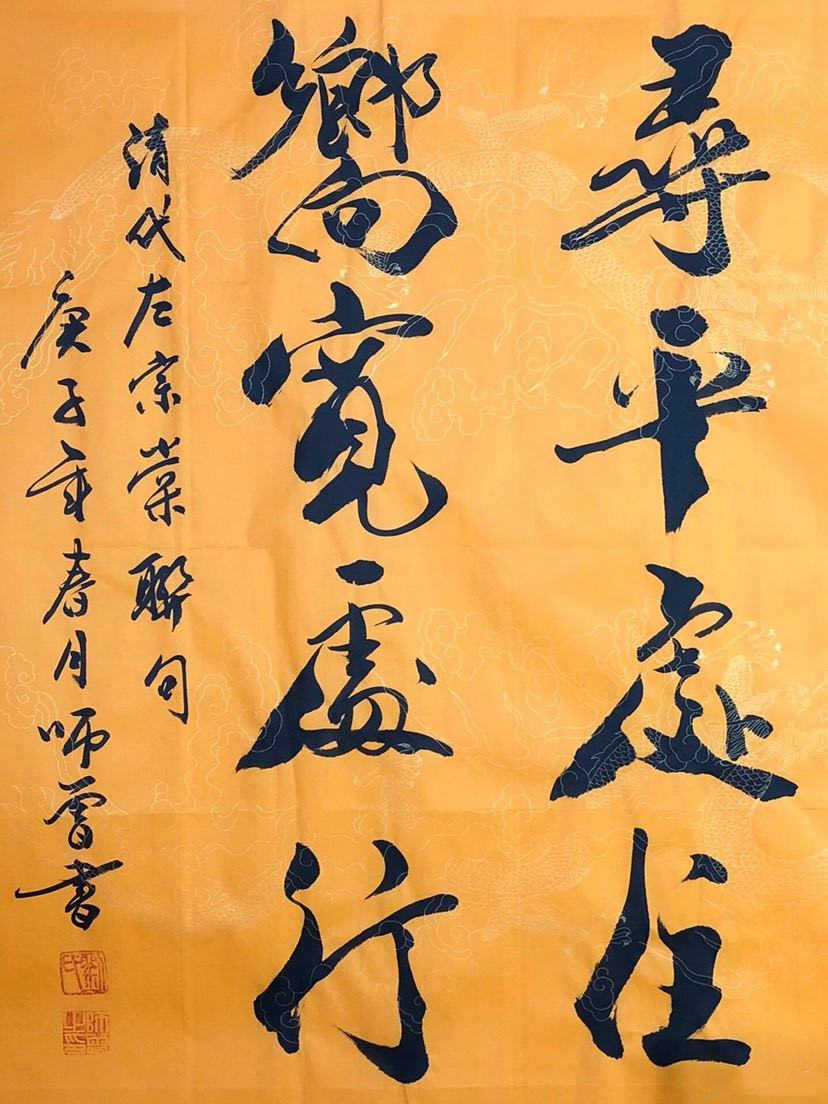 尋平處住
嚮寬處行
清代左宗棠聯句
庚子年春月師曾書
劉氏